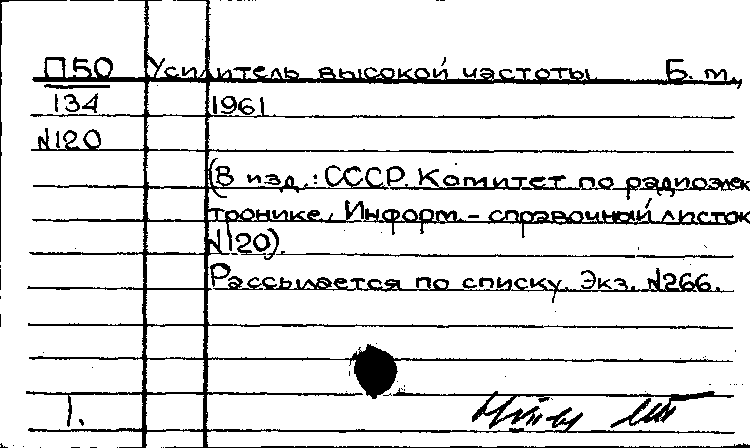 П50 Усилитель высокой частоты Б.т.,
134 1961
№120
(В изд.: СССР. Комитет по радиоэлек
тронике. Информ.-справочный листок
№120).
Рассылается по списку. Экз. №266.
1.